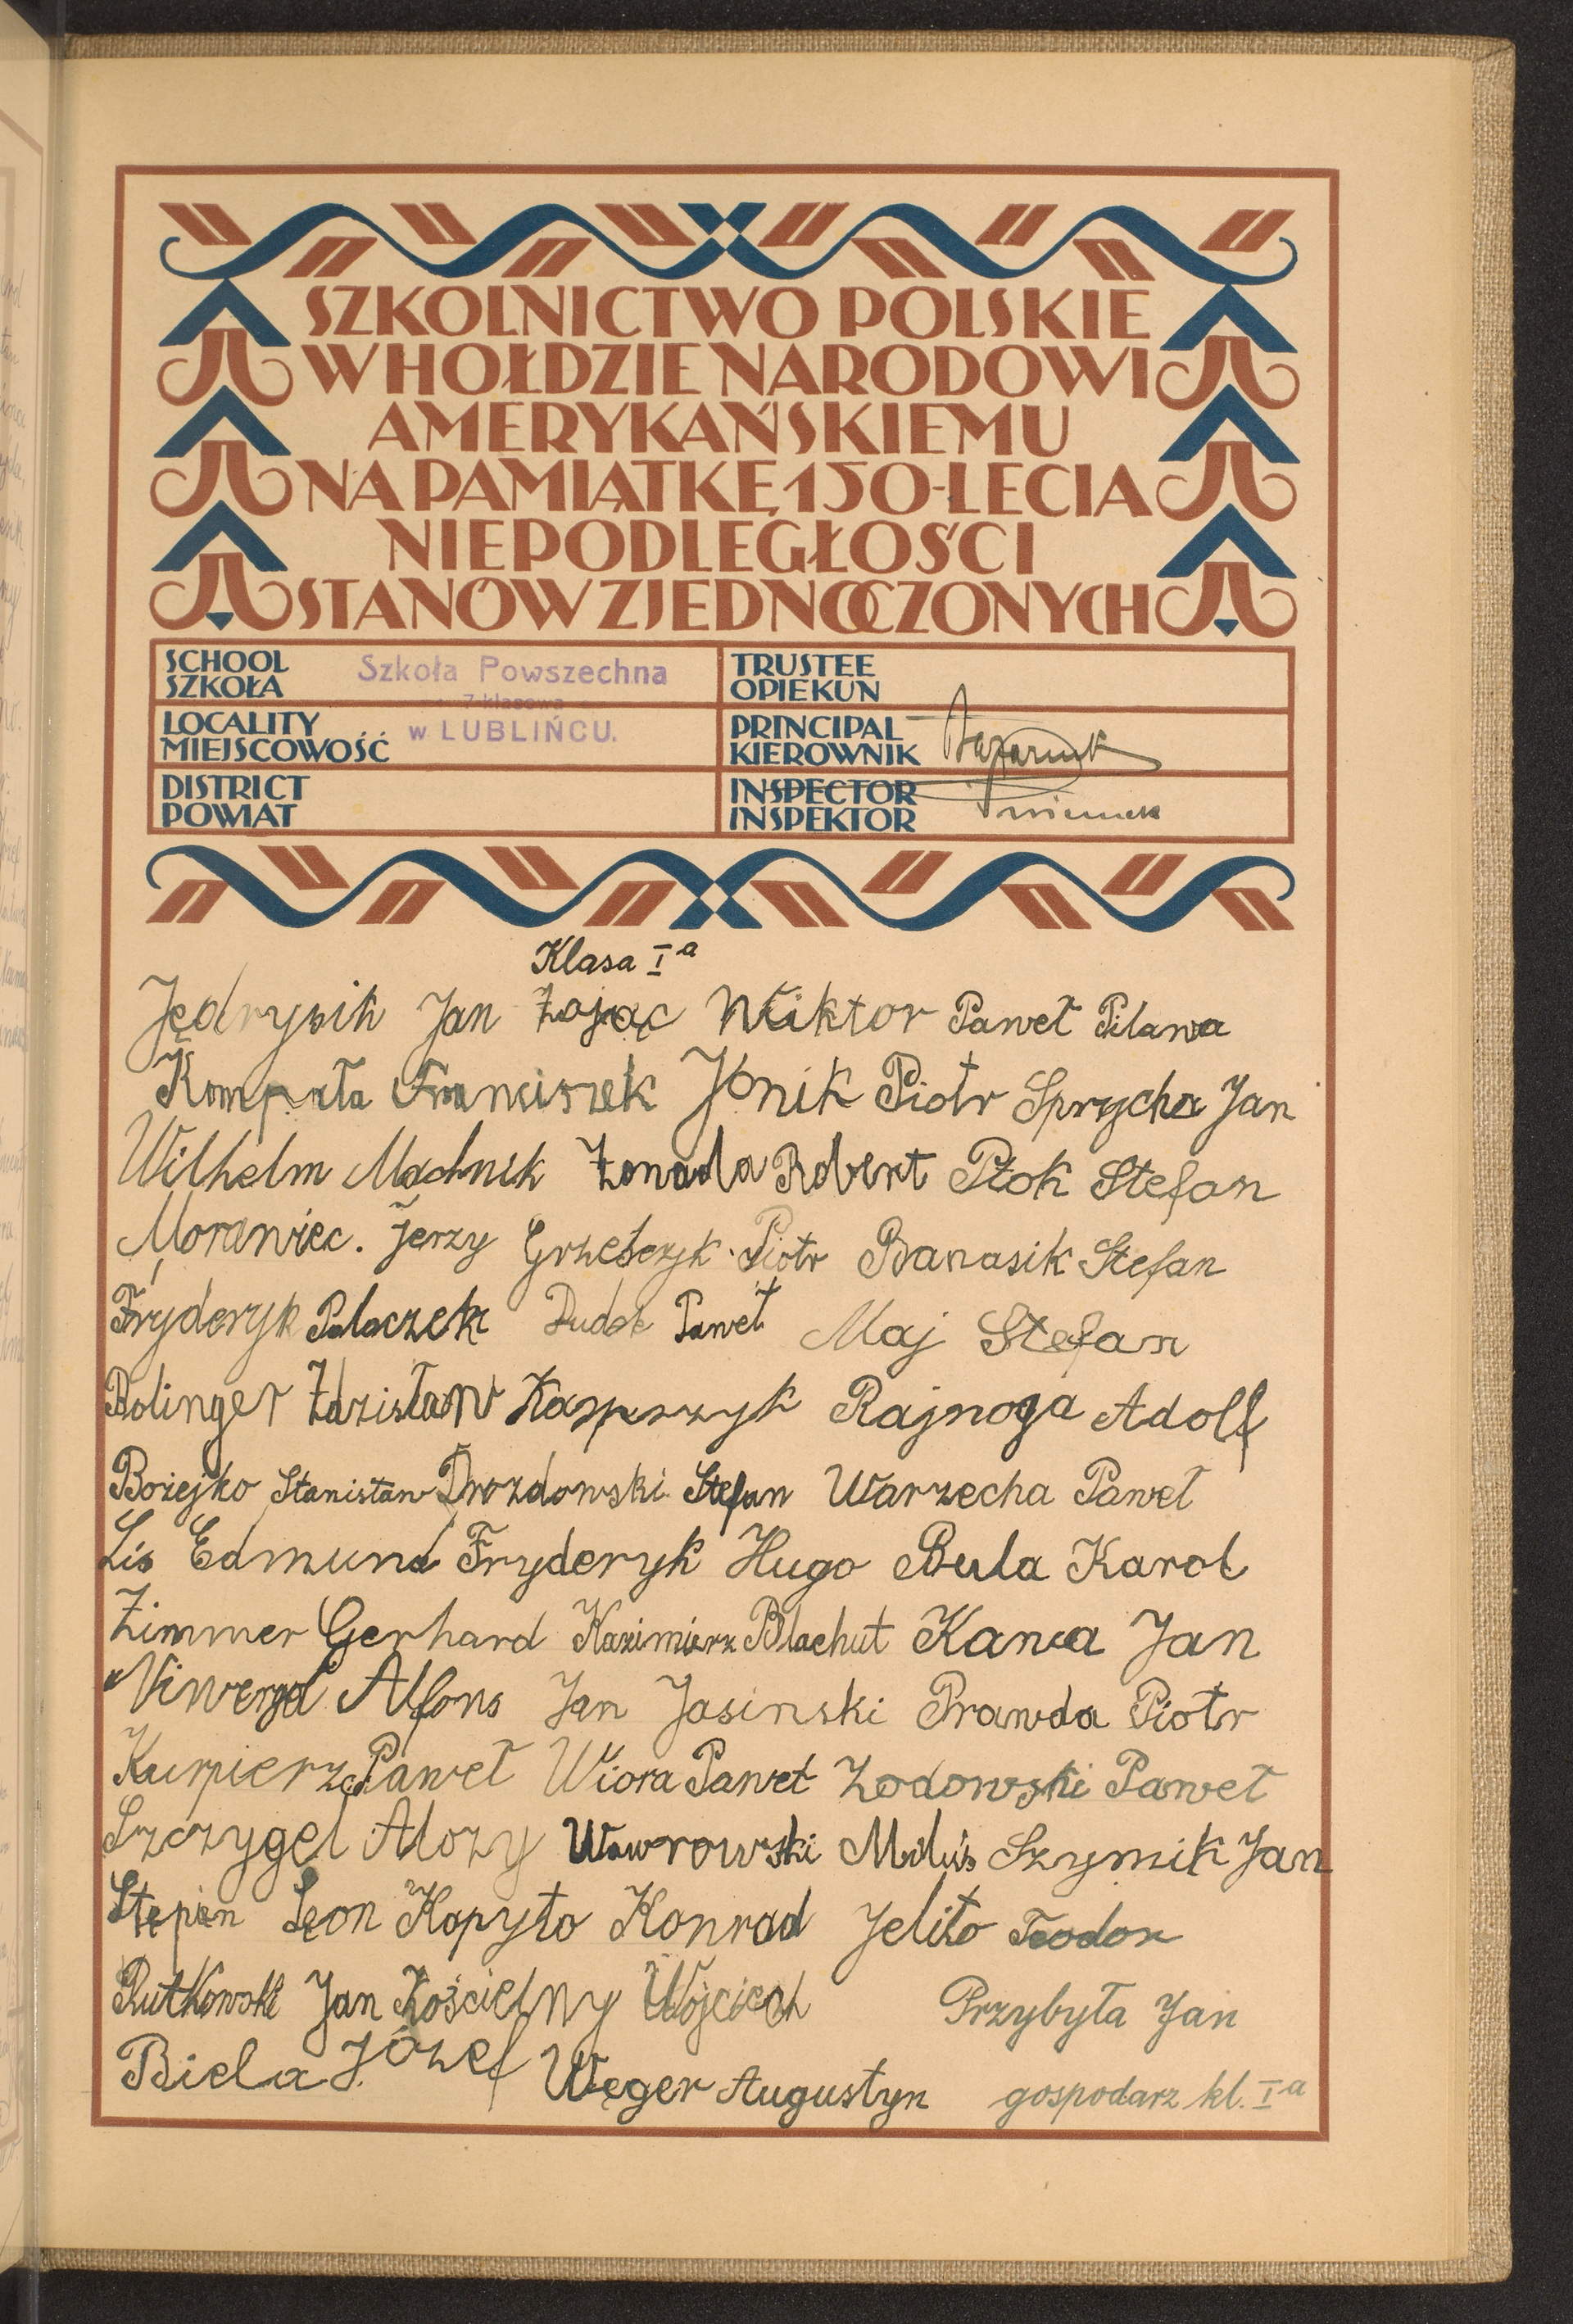 SZKOLNICTWO POLSKIE
W HOŁDZIE NARODOWI
AMERYKAŃSKIEMU
NA PAMIĄTKĘ 150-LECIA
NIEPODLEGŁOŚCI
STANÓW ZJEDNOCZONYCH
SCHOOL
SZKOŁA
Szkoła Powszechna
7-klasowa
LOCALITY
MIEJSCOWOŚĆ
w LUBLIŃCU.
DISTRICT
POWIAT
TRUSTEE
OPIEKUN
PRINCIPAL
KIEROWNIK
INSPECTOR
INSPEKTOR
Klasa I a
Jędrysik Jan Zając Wiktor Paweł Pilawa
Kompała Franciszek Jonik Piotr Sprycha Jan
Wilhelm Machnik Robert Ptok Stefan
Morawiec. Jerzy Grześczyk. Piotr Banasik Stefan
Fryderyk Palaczek Dudek Paweł Maj Stefan
Bolinger Zdzisław Kasprzyk Rajnoga Adolf
Bożejko Stanisław Drozdowski Stefan Warzecha Paweł
Lis Edmund Fryderyk Hugo Bula Karol
Zimmer Gerhard Kazimierz Blachut Kania Jan
Alfons Jan Jasinski Prawda Piotr
Kurpierz Paweł Wiora Paweł Zodowski Paweł
Szczygel Alozy Wawrowski Miluś Szymik Jan
Stępien Leon Kopyto Konrad Jelito Teodor
Rutkowski Jan Kościelny Wojciech Przybyła Jan
Biela Józef Węger Augustyn gospodarz kl. I a